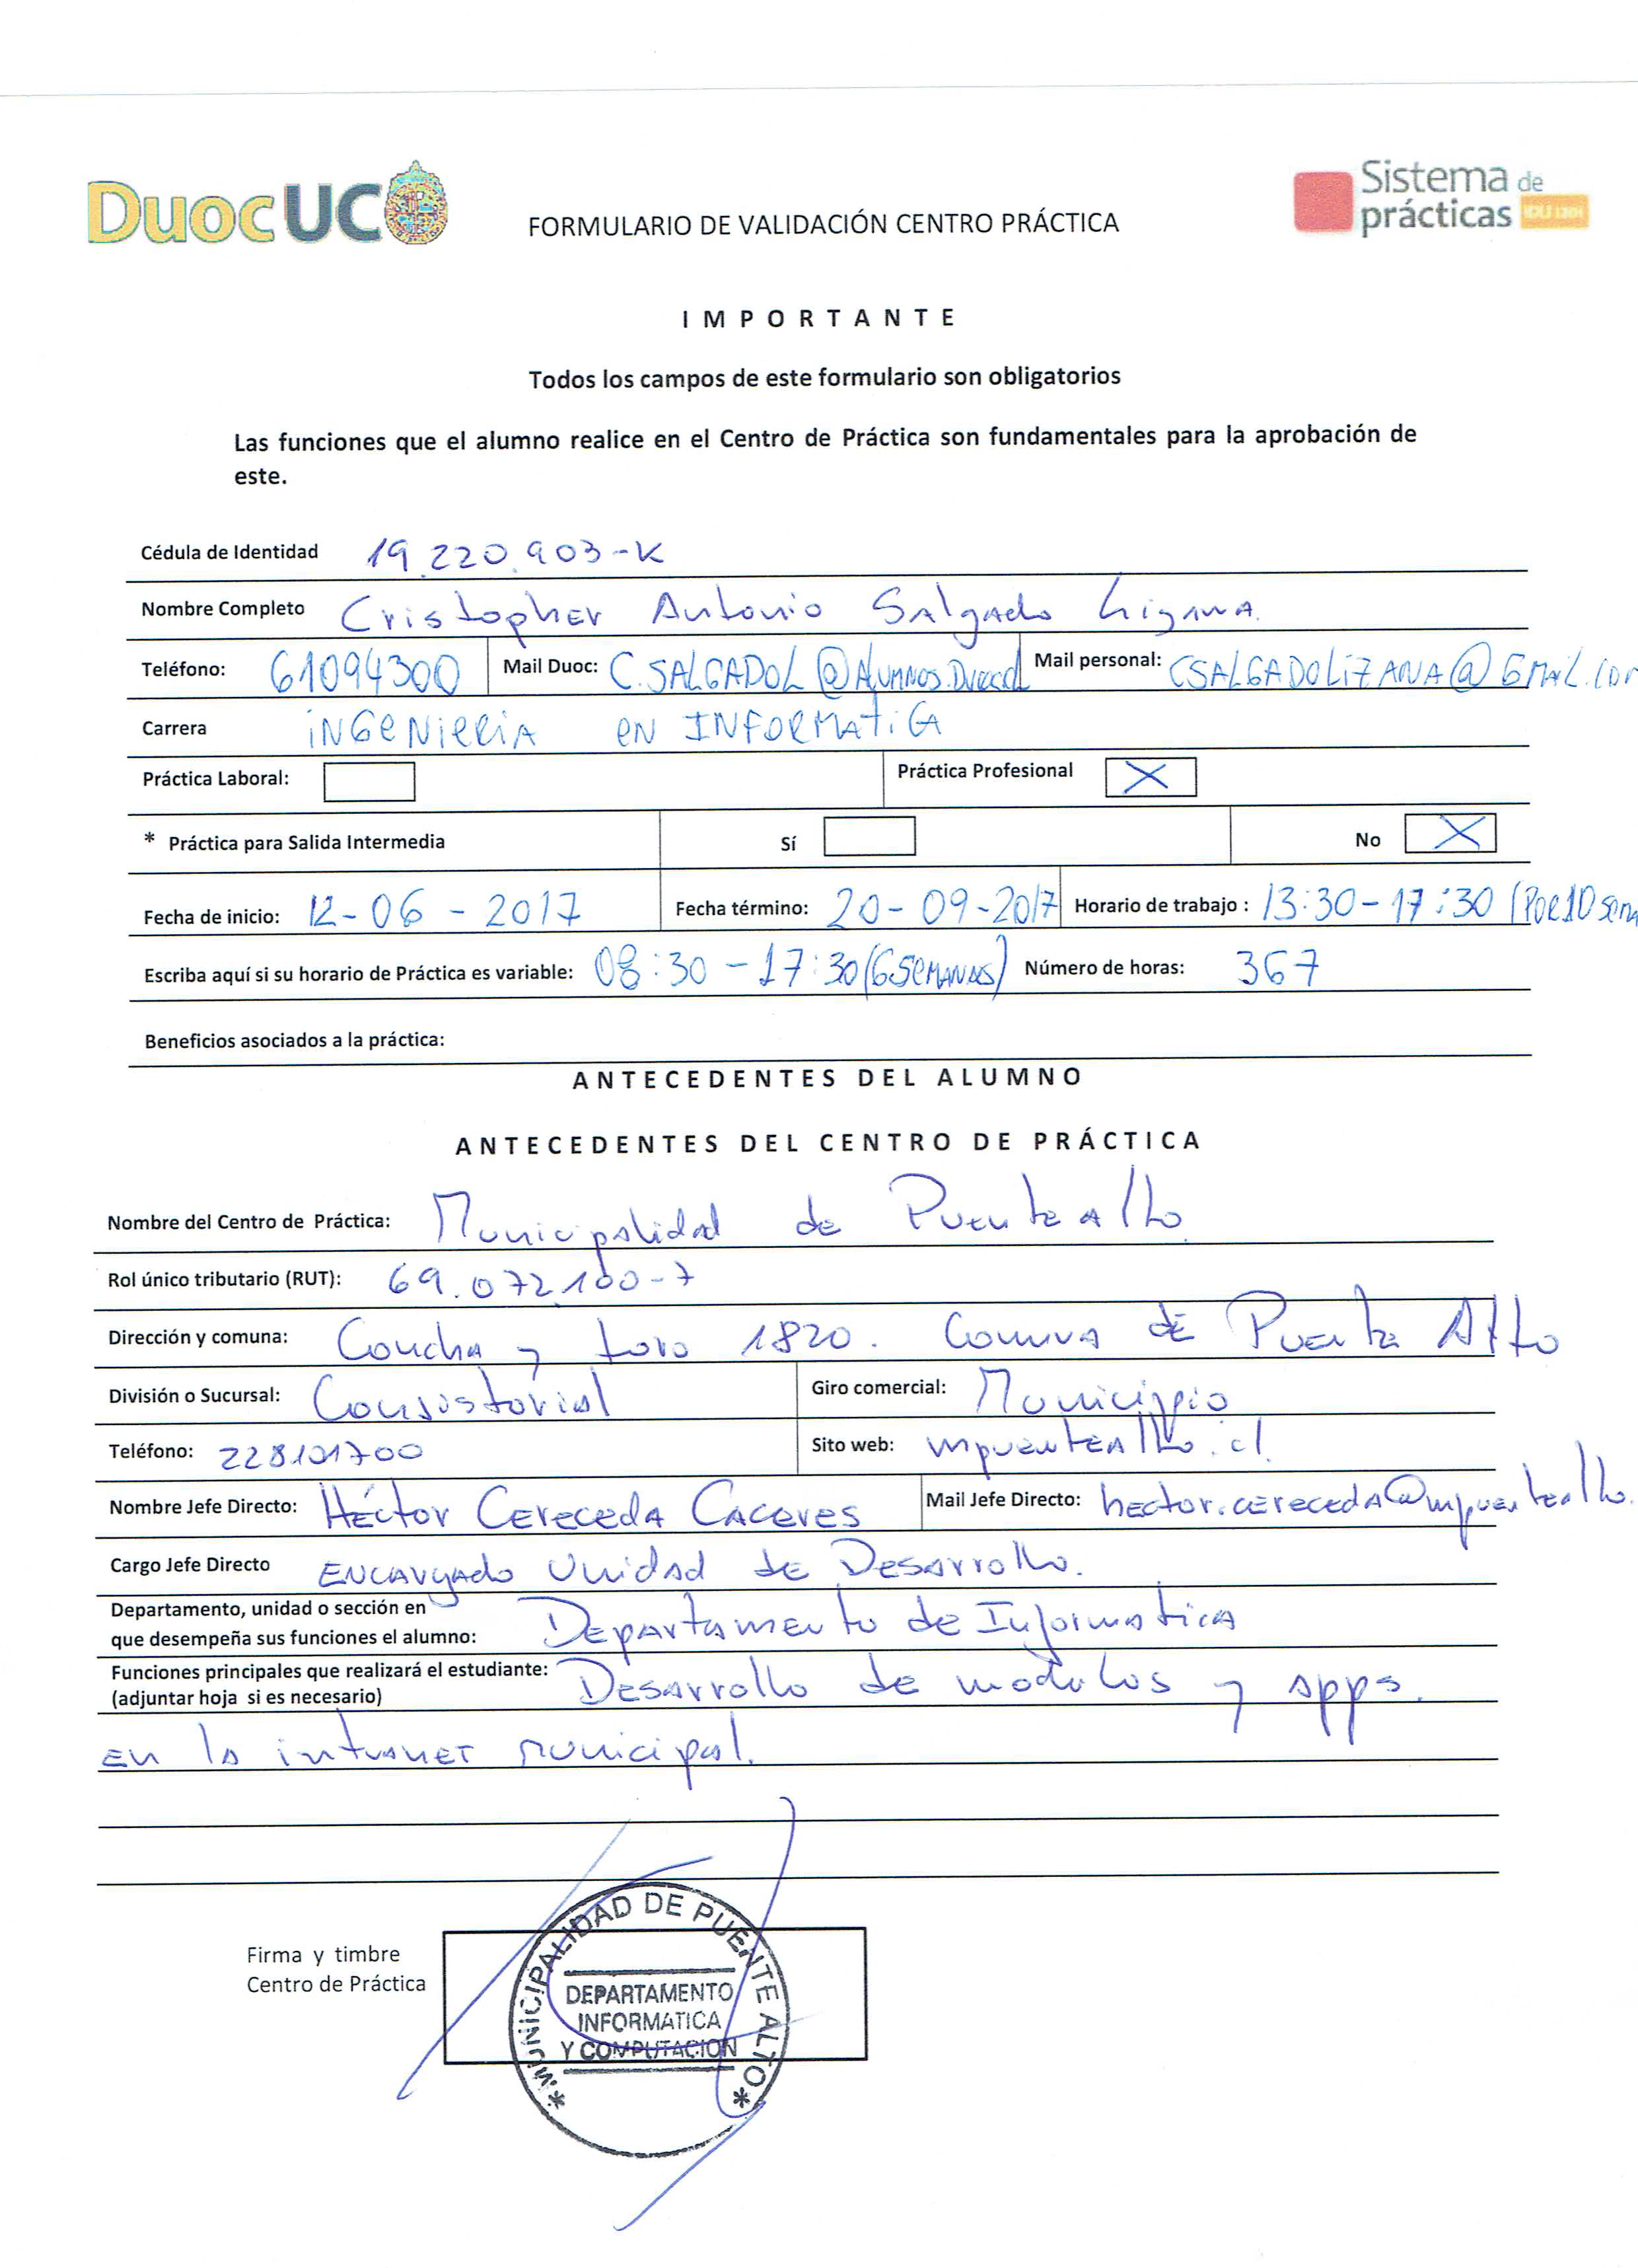 DuocUC
FORMULARIO DE VALIDACIÓN CENTRO PRÁCTICA
Sistema de
prácticas
IMPORTANTE
Todos los campos de este formulario son obligatorios
Las funciones que el alumno realice en el Centro de Práctica son fundamentales para la aprobación de
este.
Cédula de Identidad 19.220.903-K
Nombre Completo Cristopher Antonio Salgado Lizana.
Teléfono: 61094300 Mail Duoc: C.SALGADOL@ALUMNOS.DUOC.cl Mail personal: CSALGADOLIZANA@GMAIL.COM
Carrera INGENIERIA EN INFORMATICA
Práctica Laboral: Práctica Profesional X
* Práctica para Salida Intermedia Sí No X
Fecha de inicio: 12-06-2017 Fecha término: 20-09-2017 Horario de trabajo : 13:30-17:30 (POR 10 Sema
Escriba aquí si su horario de Práctica es variable: 08:30-17:30 (6 SEMANAS) Número de horas: 367
Beneficios asociados a la práctica:
ANTECEDENTES DEL ALUMNO
ANTECEDENTES DEL CENTRO DE PRÁCTICA
Nombre del Centro de Práctica: Municipalidad de Puente Alto.
Rol único tributario (RUT): 69.072.100-7
Dirección y comuna: Concha y toro 1820. Comuna de Puente Alto
División o Sucursal: Consistorial Giro comercial: Municipio
Teléfono: 228101700 Sito web: mpuentealto.cl
Nombre Jefe Directo: Héctor Cereceda Caceres Mail Jefe Directo: hector.cereceda@mpuentealto.
Cargo Jefe Directo Encargado Unidad de Desarrollo.
Departamento, unidad o sección en
que desempeña sus funciones el alumno: Departamento de Informatica
Funciones principales que realizará el estudiante:
(adjuntar hoja si es necesario) Desarrollo de modulos y apps.
en la intranet municipal.
Firma y timbre
Centro de Práctica
*MUNICIPALIDAD DE PUENTE ALTO*
DEPARTAMENTO
INFORMATICA
Y COMPUTACION